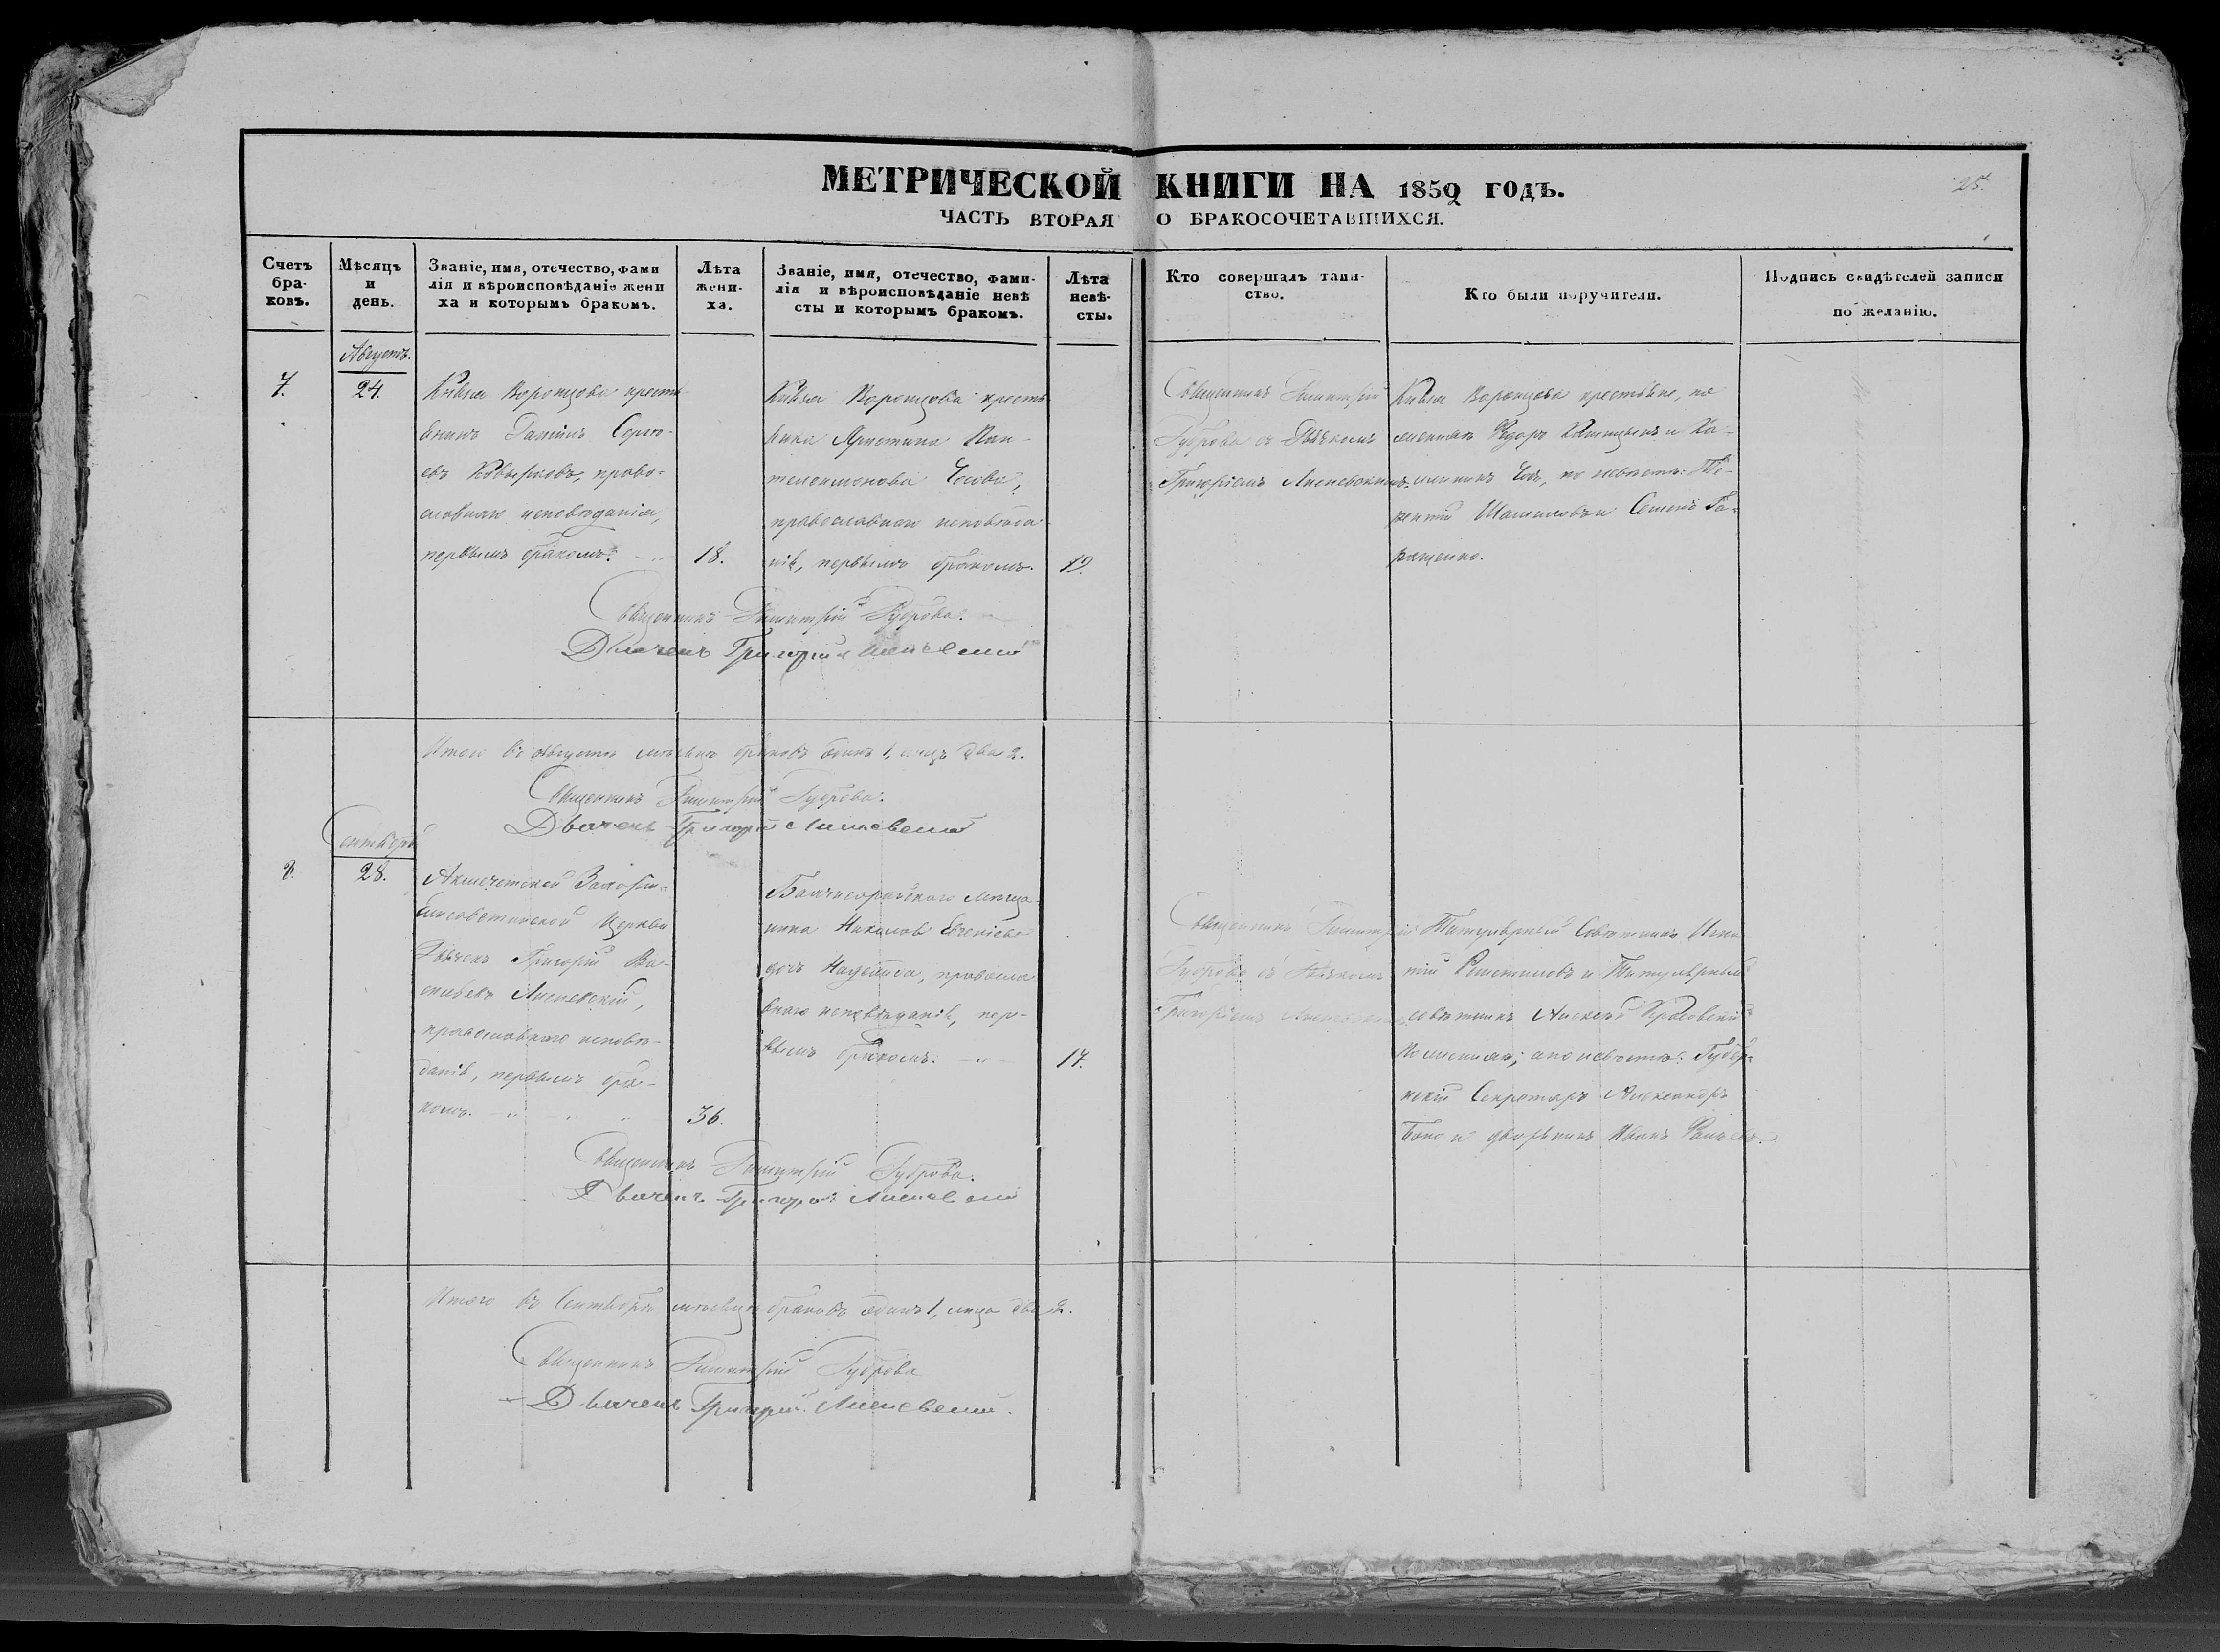 МЕТРИЧЕСКОЙ КНИГИ НА 1852 ГОДЪ.
25.
ЧАСТЬ ВТОРАЯ О БРАКОСОЧЕТАВШИХСЯ.
Счетъ бра-
ковъ.
Мѣсяцъ
и
день.
Званіе, имя, отечество, фами
лія и вѣроисповѣданіе жени
ха и которымъ бракомъ.
Лѣта
жени-
ха.
Званіе, имя, отечество, фами-
лія и вѣроисповѣданіе невѣ
сты и которымъ бракомъ.
Лѣта
невѣ-
сты.
Кто совершалъ таин-
ство.
Кто были поручители.
Подпись свидѣтелей записи
по желанію.
Августъ.
7.
24.
Князя Воронцова кресть
янинъ Сергѣ-
евъ право-
славнаго исповѣданія,
первымъ бракомъ.
18.
Князя Воронцова кресть
Пан-
телеимонова
православнаго исповѣда
нія, первымъ бракомъ.
19.
Священникъ Димитрій
Губрова съ Дьячкомъ
Григоріемъ
Князя Воронцова крестьяне, по
женихѣ и
по невѣстѣ:
и Семенъ Га-
ращенко.
Священникъ Димитрій Губрова.
Дьячекъ Григорій
Итого въ Августѣ мѣсяцѣ браковъ одинъ 1, лицъ два 2.
Священникъ Димитрій Губрова.
Дьячекъ Григорій
Сентябрь
8.
28.
Акмечетской
Елисаветинской Церкви
Дьячекъ Григорій Ва-
сильевъ
православнаго исповѣ-
данія, первымъ бра-
комъ.
36.
Бахчисарайскаго мѣща-
нина
дочь Надежда, правосла
внаго исповѣданія, пер-
вымъ бракомъ.
17.
Священникъ Димитрій
Губрова съ Дьячкомъ
Григоріемъ
Титулярный Совѣтникъ Игна
тій и Титулярный
совѣтникъ Алексѣй
по женихѣ; а по невѣстѣ: Губер-
нскій Секретарь Александръ
и дворянинъ Иванъ
Священникъ Димитрій Губрова.
Дьячекъ Григорій
Итого въ Сентябрѣ мѣсяцѣ браковъ одинъ 1, лица два 2.
Священникъ Димитрій Губрова
Дьячекъ Григорій